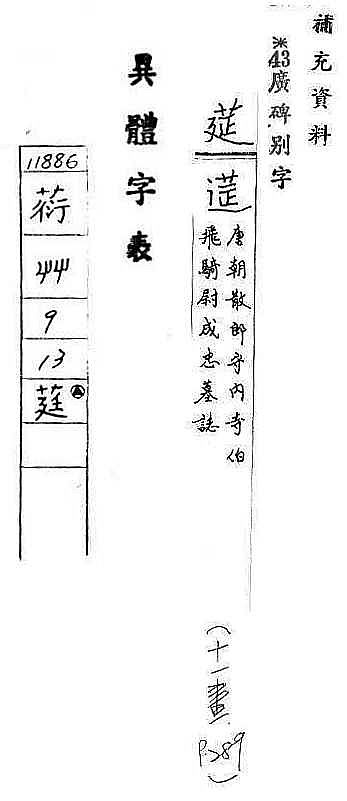 補充資料
*43廣碑別字
莚
唐朝散郎守內寺伯
飛騎尉成忠墓誌
(十一畫
P.289)
異體字表
11886
荇
艸
9
13
莚